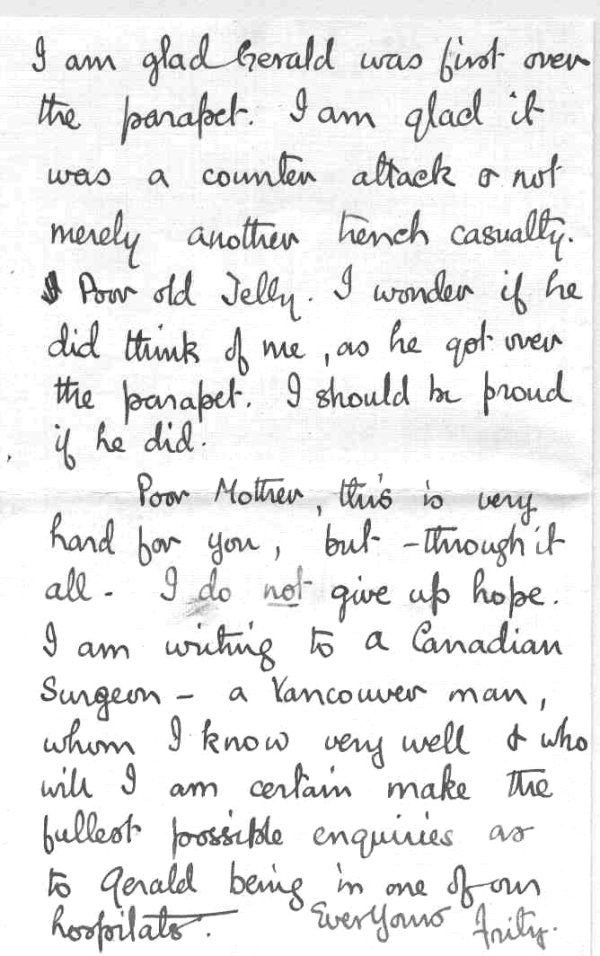 I am glad Gerald was first over
the parapet. I am glad it
was a counter attack & not
merely another trench casualty.
Poor old Jelly. I wonder if he
did think of me, as he got over
the parapet. I should be proud
if he did.
Poor Mother, this is very
hard for you, but - through it
all - I do not give up hope.
I am writing to a Canadian
Surgeon - a Vancouver man,
whom I know very well & who
will I am certain make the
fullest possible enquiries as
to Gerald being in one of our
hospitals. Ever Yours Fritz.